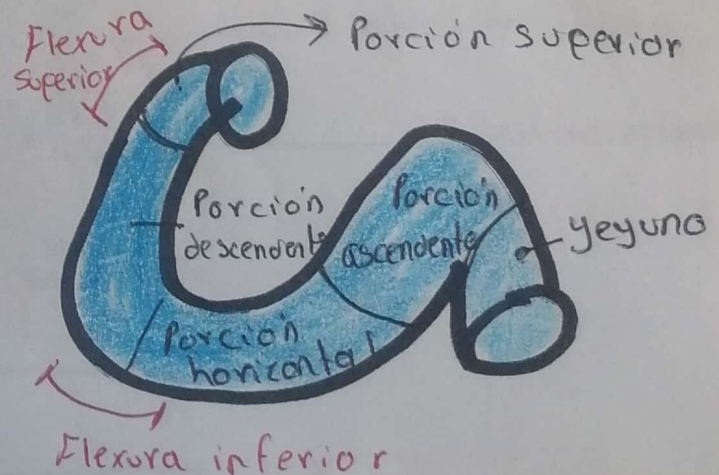 Flexura
superior
Porción superior
Porción
descendente
Porción
ascendente
yeyuno
Porción
horizontal
Flexura inferior